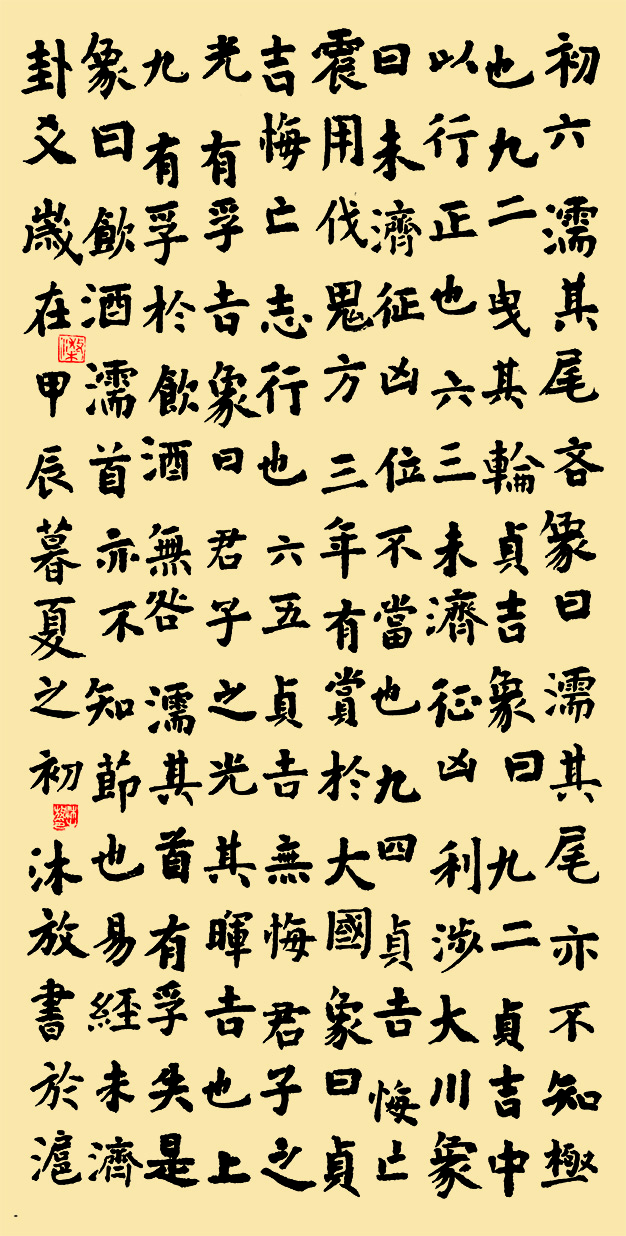 初六濡其尾吝象曰濡其尾亦不知極
也九二曳其輪貞吉象曰九二貞吉中
以行正也六三未濟征凶利涉大川象
曰未濟征凶位不當也九四貞吉悔亡
震用伐鬼方三年有賞於大國象曰貞
吉悔亡志行也六五貞吉無悔君子之
光有孚吉象曰君子之光其暉吉也上
九有孚於飲酒無咎濡其首有孚失是
象曰飲酒濡首亦不知節也易經未濟
卦爻歲在甲辰暮夏之初沐放書於滬